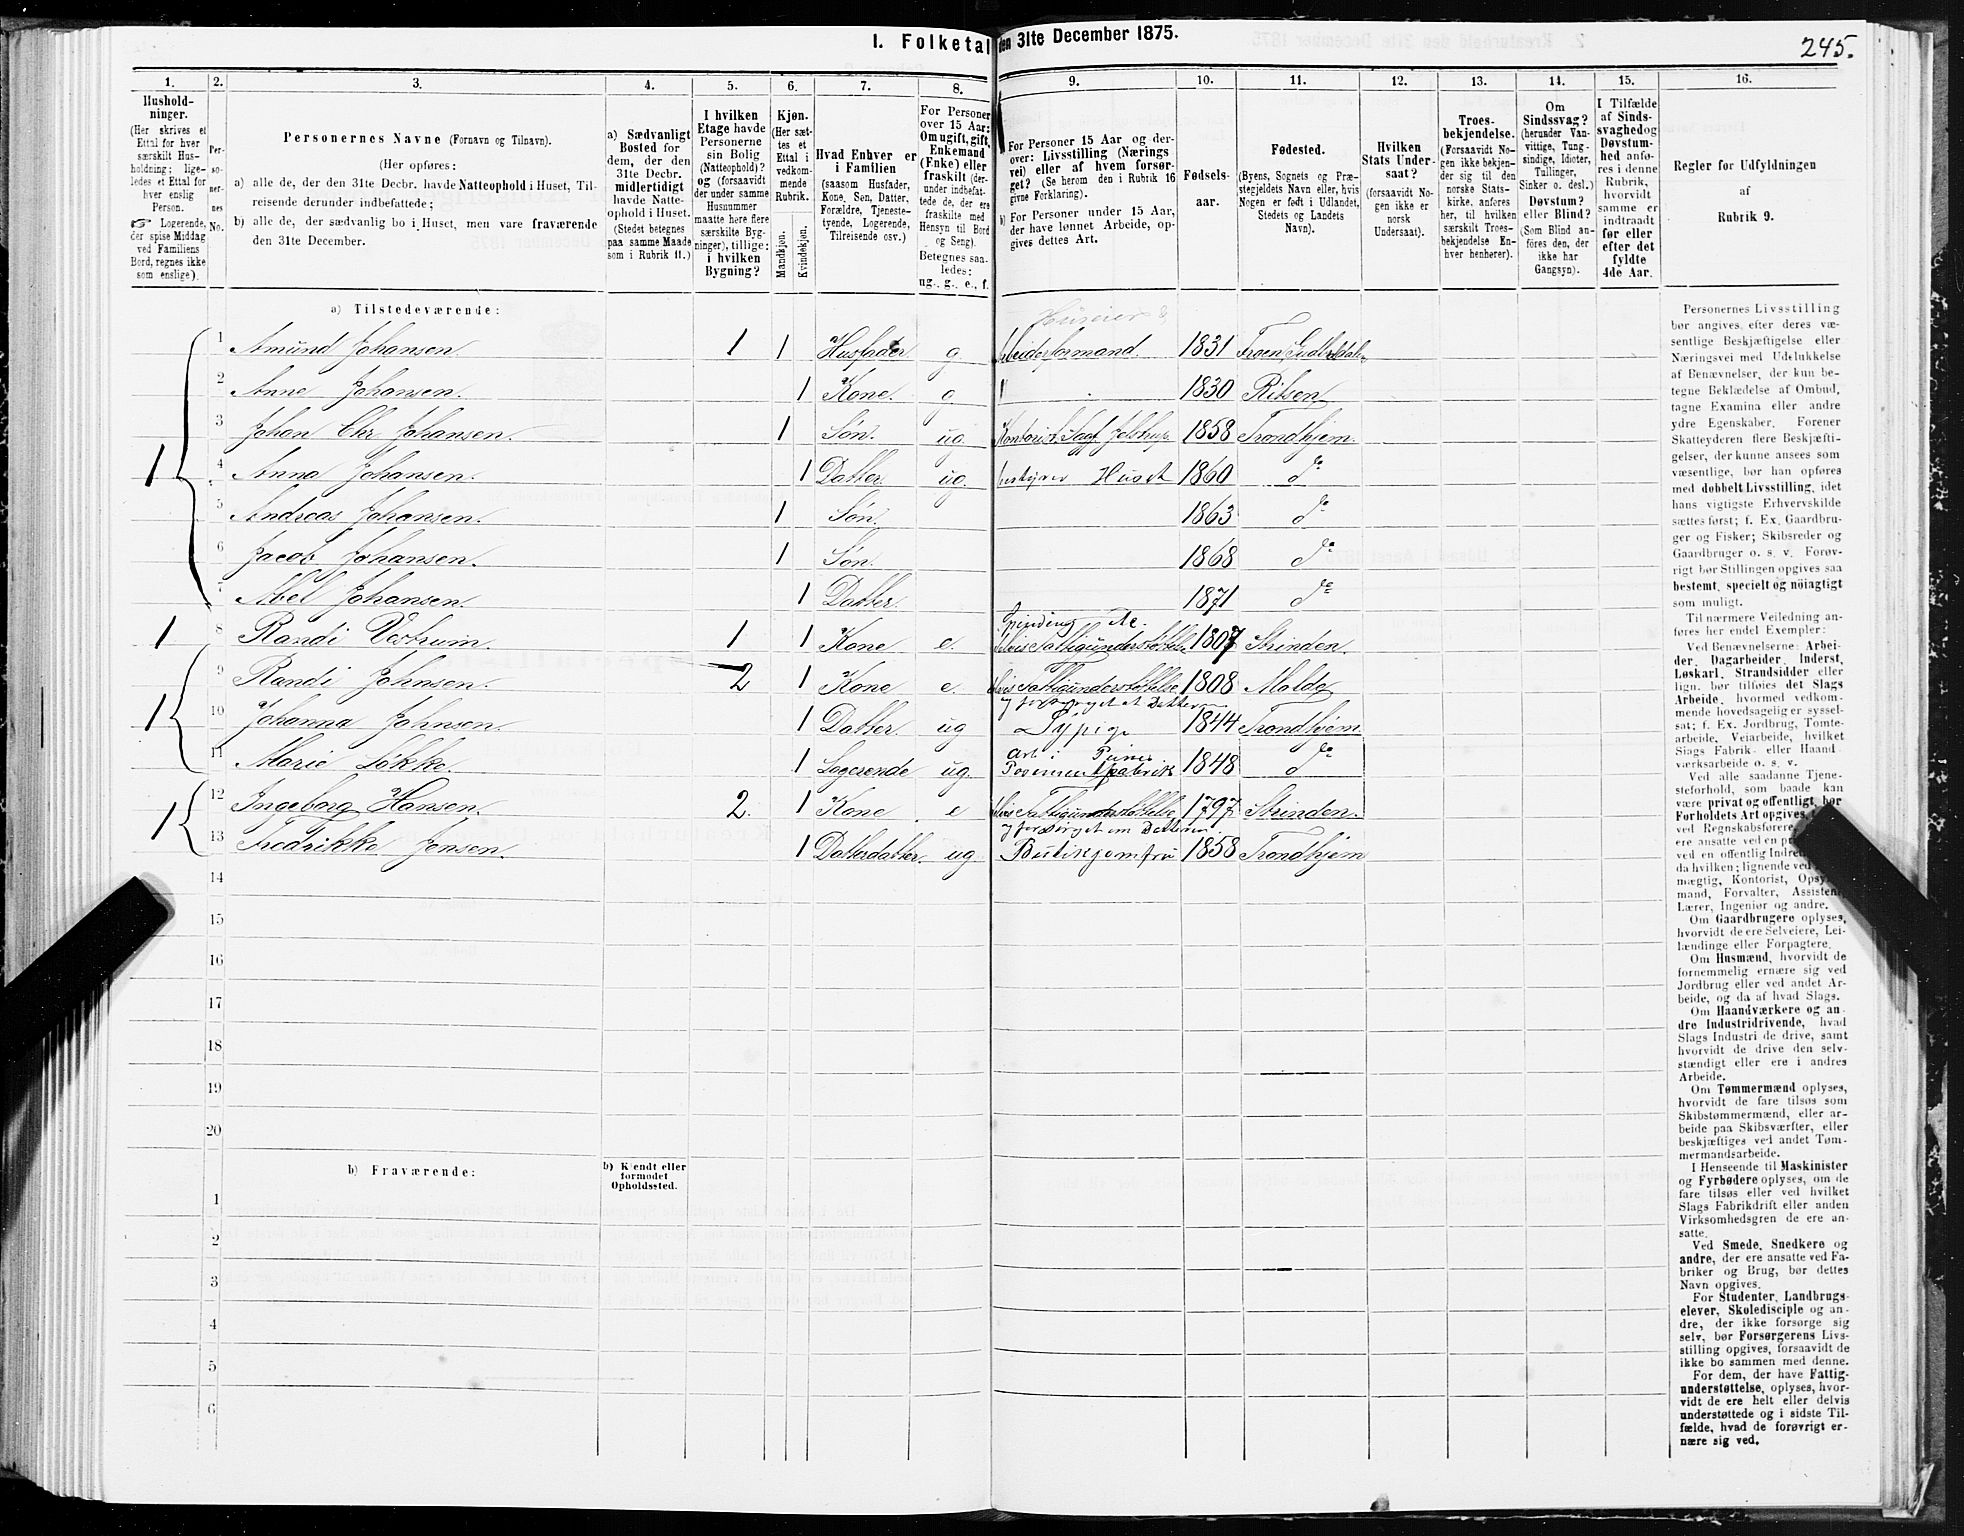 I. Folketal
den 31te December 1875.
245.
1.
2.
3.
4.
5.
6.
7.
8.
9.
10.
11.
12.
13.
14.
15.
16.
Hushold-
ninger.
(Her skrives et
Ettal for hver
særskilt Hus-
holdning; lige-
ledes et Ettal for
hver enslig
Person.
☞ Logerende,
der spise Middag
ved Familiens
Bord, regnes ikke
som enslige).
Per-
so-
ner-
nes
No.
Personernes Navne (Fornavn og Tilnavn).
(Her opføres:
a) alle de, der den 31te Decbr. havde Natteophold i Huset, Til-
reisende derunder indbefattede;
b) alle de, der sædvanlig bo i Huset, men vare fraværende
den 31te December.
a) Sædvanligt
Bosted for
dem, der den
31te Decbr.
midlertidigt
havde Natte-
ophold i Huset.
(Stedet betegnes
paa samme Maade
som i Rubrik 11.)
I hvilken
Etage havde
Personerne
sin Bolig
(Natteophold)?
og (forsaavidt
der under samme
Husnummer
maatte høre flere
særskilte Byg-
ninger), tillige:
i hvilken
Bygning?
Kjøn.
(Her sæt-
tes et
Ettal i
vedkom-
mende
Rubrik.
Mandkjøn.
Kvindekjøn.
Hvad Enhver er
i Familien
(saasom Husfader,
Kone, Søn, Datter,
Forældre, Tjeneste-
tyende, Logerende,
Tilreisende osv.)
For Personer
over 15 Aar:
Om ugift, gift,
Enkemand
(Enke) eller
fraskilt (der-
under indbefat-
tede de, der ere
fraskilte med
Hensyn til Bord
og Seng).
Betegnes saa-
ledes:
ug., g., e., f.
For Personer 15 Aar og der-
over: Livsstilling (Nærings
vei) eller af hvem forsør-
get? (Se herom den i Rubrik 16
givne Forklaring).
b) For Personer under 15 Aar,
der have lønnet Arbeide, op-
gives dettes Art.
Fødsels-
aar.
Fødested.
(Byens, Sognets og Præ-
stegjeldets Navn eller, hvis
Nogen er født i Udlandet,
Stedets og Landets
Navn).
Hvilken
Stats Under-
saat?
(forsaavidt No-
gen ikke er
norsk
Undersaat).
Troes-
bekjendelse.
(Forsaavidt No-
gen ikke bekjen-
der sig til den
norske Stats-
kirke, anføres
her, til hvilken
særskilt Troes-
bekjendelse En-
hver henhører).
Om
Sindssvag?
(herunder Van-
vittige, Tung-
sindige, Idioter,
Tullinger,
Sinker o. desl.)
Døvstum?
eller Blind?
(Som Blind an-
føres den, der
ikke har
Gangsyn).
I Tilfælde
af Sinds-
svaghed og
Døvstum-
hed anfø-
res i denne
Rubrik,
hvorvidt
samme er
indtraadt
før eller
efter det
fyldte
4de Aar.
Regler for Udfyldningen
af
Rubrik 9.
a) Tilstedeværende:
Huseier &
1 1 Amund Johansen. 1 1 Husfader g Arbeidsformand. 1831 Froen Gudbrdalen
2 Anne Johansen. 1 Kone. g 1830 Rissen
3 Johan Chr Johansen. 1 Søn. ug. Kontorist, Sagf Jelstrup 1858 Trondhjem.
4 Anna Johansen. 1 Datter. ug. bestyrer Huset 1860 do
5 Andreas Johansen. 1 Søn. 1863 do
6 Jacob Johansen. 1 Søn. 1868 do
7 Abel Johansen. 1 Datter. 1871 do
1 8 Randi Vestrum. 1 1 Kone e. Spinding &c. delvis Fattigunderstøttelse 1807 Strinden.
1 9 Randi Johnsen. 2 1 Kone e. delvis Fattigunderstøttelse 1808 Molde
og forsørget at Datteren
10 Johanna Johnsen. 1 Datter. ug Sypige 1844 Trondhjem.
11 Marie Løkke. 1 Logerende ug. Arb i 1848 do
1 12 Ingeborg Hansen. 2. 1 Kone e delvis Fattigunderstøttelse 1797 Strinden.
og forsørget em Datteren.
13 Fredrikke Jensen. 1 Datterdatter. ug Butikjomfru 1858 Trondhjem
14
15
16
17
18
19
20
b) Fraværende:
b) Kjendt eller
formodet
Opholdssted.
1
2
3
4
5
6
Personernes Livsstilling
bør angives efter deres væ-
sentlige Beskjæftigelse eller
Næringsvei med Udelukkelse
af Benævnelser, der kun be-
tegne Beklædelse af Ombud,
tagne Examina eller andre
ydre Egenskaber. Forener
Skatteyderen flere Beskjæfti-
gelser, der kunne ansees som
væsentlige, bør han opføres
med dobbelt Livsstilling, idet
hans vigtigste Erhvervskilde
sættes først; f. Ex. Gaardbru-
ger og Fisker; Skibsreder og
Gaardbruger o. s. v. Forøv-
rigt bør Stillingen opgives saa
bestemt, specielt og nøiagtigt
som muligt.
Til nærmere Veiledning an-
føres her endel Exempler:
Ved Benævnelserne: Arbei-
der, Dagarbeider, Inderst,
Løskarl, Strandsidder eller
lign. bør tilføies det Slags
Arbeide, hvormed vedkom-
mende hovedsagelig er syssel-
sat; f. Ex. Jordbrug, Tomte-
arbeide, Veiarbeide, hvilket
Slags Fabrik- eller Haand-
værksarbeide o. s. v.
Ved alle saadanne Tjene-
steforhold, som baade kan
være privat og offentlig, bør
Forholdets Art opgives,
ved Regnskabsførere
ere ansatte ved en p
ved en offentlig Indre
da hvilken; lignende ved
mægtig, Kontorist, Opsy
mand, Forvalter, Assisten
Lærer, Ingeniør og andre.
Om Gaardbrugere oplyses,
hvorvidt de ere Selveiere, Lei-
lændinge eller Forpagtere.
Om Husmænd, hvorvidt de
fornemmelig ernære sig ved
Jordbrug eller ved andet Ar-
beide, og da af hvad Slags.
Om Haandværkere og an-
dre Industridrivende, hvad
Slags Industri de drive, samt
hvorvidt de drive den selv-
stændigt eller ere i andres
Arbeide.
Om Tømmermænd oplyses,
hvorvidt de fare tilsøs som
Skibstømmermænd, eller ar-
beide paa Skibsværfter, eller
beskjæftiges ved andet Tøm-
mermandsarbeide.
I Henseende til Maskinister
og Fyrbødere oplyses, om de
fare tilsøs eller ved hvilket
Slags Fabrikdrift eller anden
Virksomhedsgren de ere an-
satte.
Ved Smede, Snedkere og
andre, der ere ansatte ved Fa-
briker og Brug, bør dettes
Navn opgives.
For Studenter, Landbrugs-
elever, Skoledisciple og an-
dre, der ikke forsørge sig
selv, bør Forsørgerens Livs-
stilling opgives, forsaavidt de
ikke bo sammen med denne.
For dem, der have Fattig-
understøttelse, oplyses, hvor-
vidt de ere helt eller delvis
understøttede og i sidste Til-
fælde, hvad de forøvrigt er-
nære sig ved.